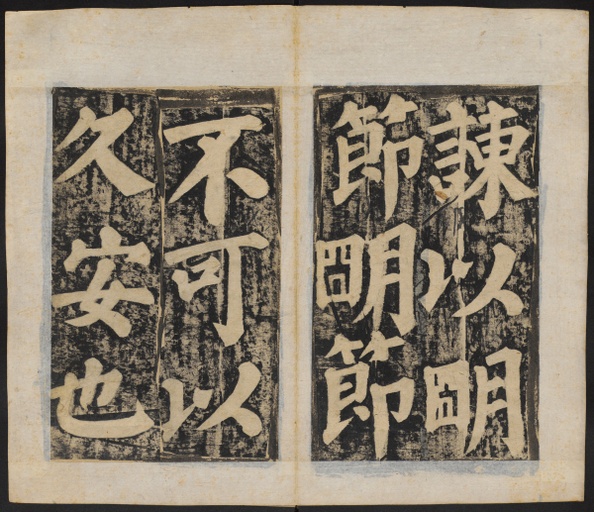 諫以明
節明節
不可以
久安也